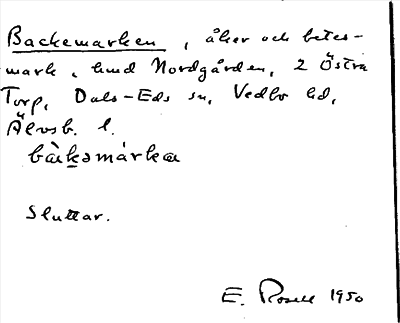 Backemarken, åker och betes-
mark, hmd Nordgården, 2 Östra
Torp, Dals-Eds sn, Vedbo hd,
Älvsb. l.
bàkəmàrkα
Sluttar.
E. Rosell 1950